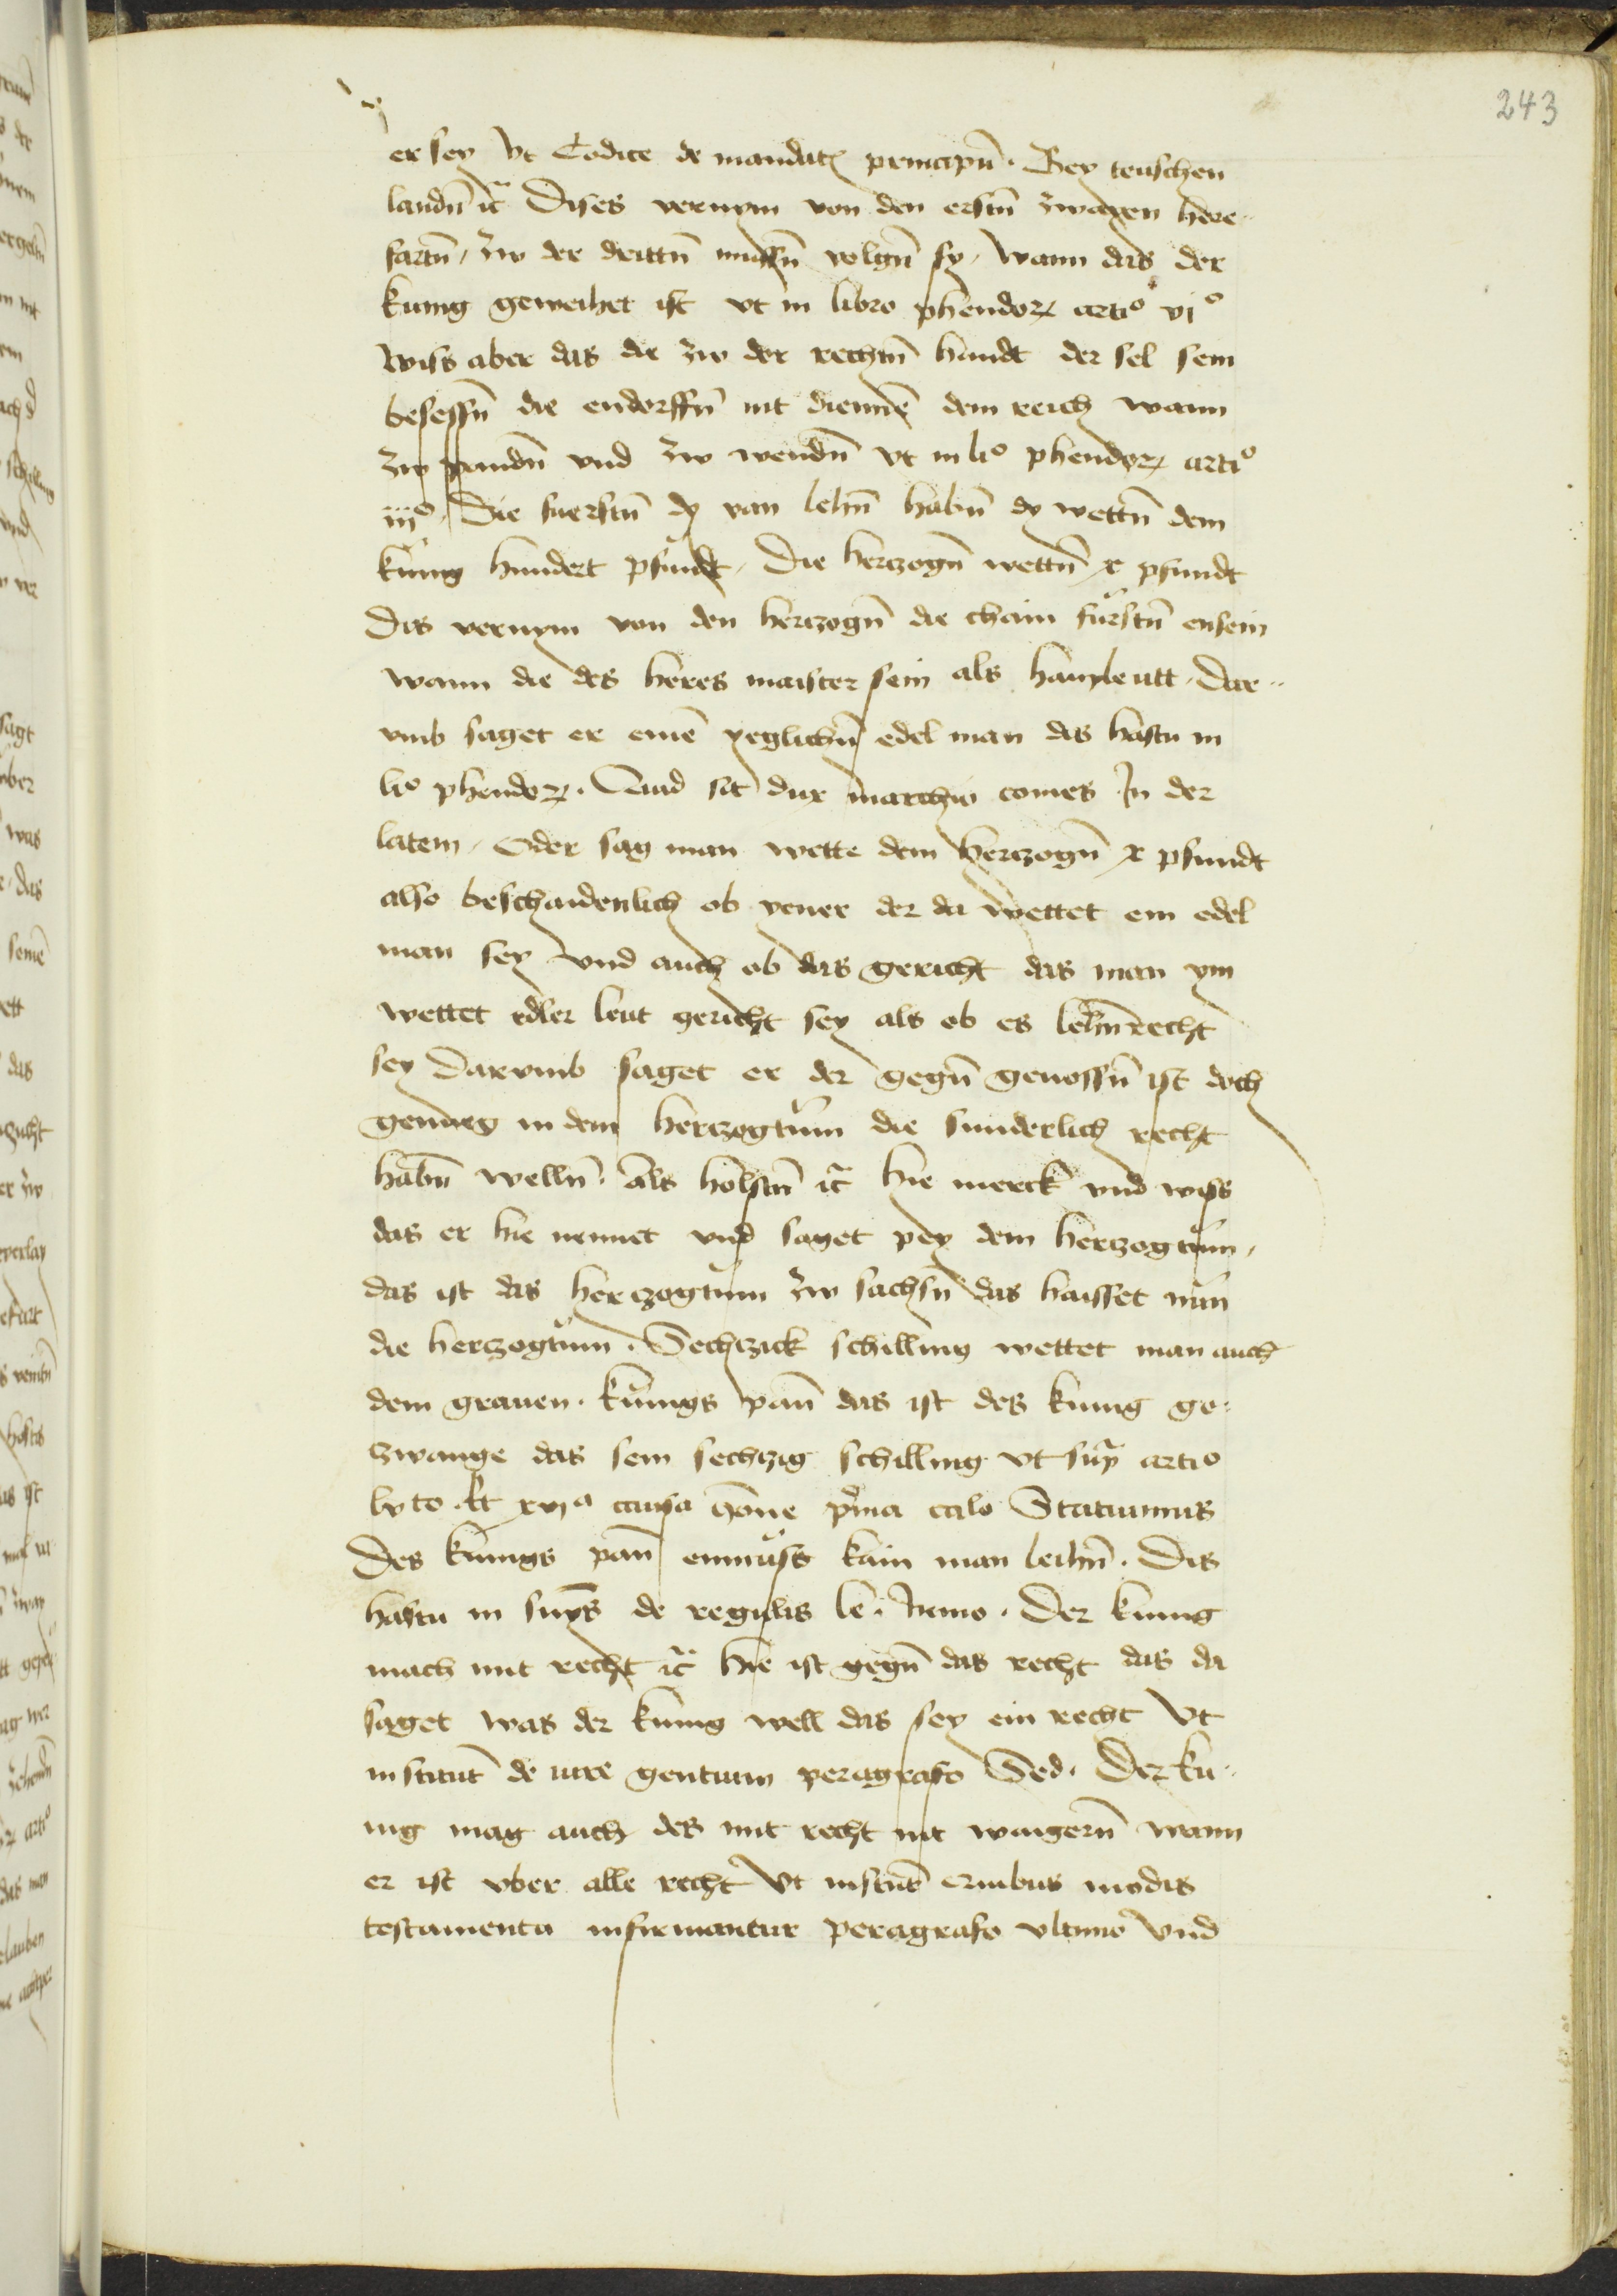 243
er sey Vt Codice de mandat principū. Bey teuschen
landn̄ ıc̄ Dises vernym von den erstn̄ zwayen here
fartn̄, zw der drittn̄ mussn̄ volgn̄ sy, wann das der
kunig geweihet ist vt in libro phendorꝝ artio vjo
Wiss aber das die zw der rechtn̄ handt der sel sein
besessn̄ die endorffn̄ nit dienne͞ dem reich wann
zw pandn̄ vnd zw wendn̄ Vt in lio phendorꝝ artio
iijo. Die fuerstn̄ dy van lehn̄ habn̄ dy wettn̄ dem
kůnig hundert pfundt, Die herczogn̄ wettn̄ x pfundt
Das vernym von den herczogn̄ die chain fürstn̄ ensein
wann die des heres maister sein als haupleutt, Dar
vmb saget er eine͞ yeglichn̄ edel man das hastu in
lio phendorꝝ. Quid sit dux marchio comes In der
latein, Oder sag man wette dem herczogn̄ x pfundt
also beschaidenlich ob yener der da wettet ein edel
man sey Vnd auch ob das gericht das man ym
wettet edler leut gericht sey als ob es lehn̄recht
sey Darvmb saget er der gegn̄ genossn̄ ist doch
genueg in dem herczogtům die sunderlich recht
habn̄ welln̄. Als holstn̄ ıc̄ hie merck vnd wiss
das er hie nennet vnd saget pey dem herczogtům,
das ist das herczogtům zw sachsn̄ das haisset nŭn
die herczogtům. Sechczick schilling wettet man auch
dem grauen. Kůnigs pann̄ das ist des kunig ge
zwange das sein sechzig schilling Vt supͣ artio
lvto Et xvja causa qōne pͥma calo Statuimus
Des kunigs pann̄ enmŭss kain man leihn̄. Das
hastu in supͣs de regulis le. Nemo. Der kunig
mach mit recht ıc̄ hie ist gegn̄ das recht das da
saget was der kunig well das sey ein recht Vt
institut̄ de iure gentium peragrafo Sed. Der ku
nig mag auch des mit recht nit waigern̄ wann
er ist vber alle recht Vt institut̄ modis
testamenta infirmantur peragrafo vltimo Vnd